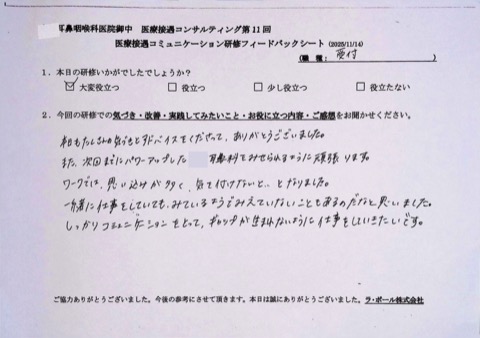 耳鼻咽喉科医院御中　医療接遇コンサルティング第11回
医療接遇コミュニケーション研修フィードバックシート（2025/11/14）
（職種：受付　）
1．本日の研修いかがでしたでしょうか？
☑ 大変役立つ　□ 役立つ　□ 少し役立つ　□ 役立たない
2．今回の研修での気づき・改善・実践してみたいこと・お役に立つ内容・ご感想をお聞かせください。
本日もたくさんの気づきとアドバイスをくださって、ありがとうございました。
また、次回までにパワーアップした　耳鼻科でみせられるように頑張ります。
ワークでは、思い込みが多く、気を付けないと…となりました。
一緒に仕事をしていても、みているようでみえていないこともあるのだなと思いました。
しっかりコミュニケーションをとって、ギャップが生まれないように仕事をしていきたいです。
ご協力ありがとうございました。今後の参考にさせて頂きます。本日は誠にありがとうございました。ラ・ポール株式会社